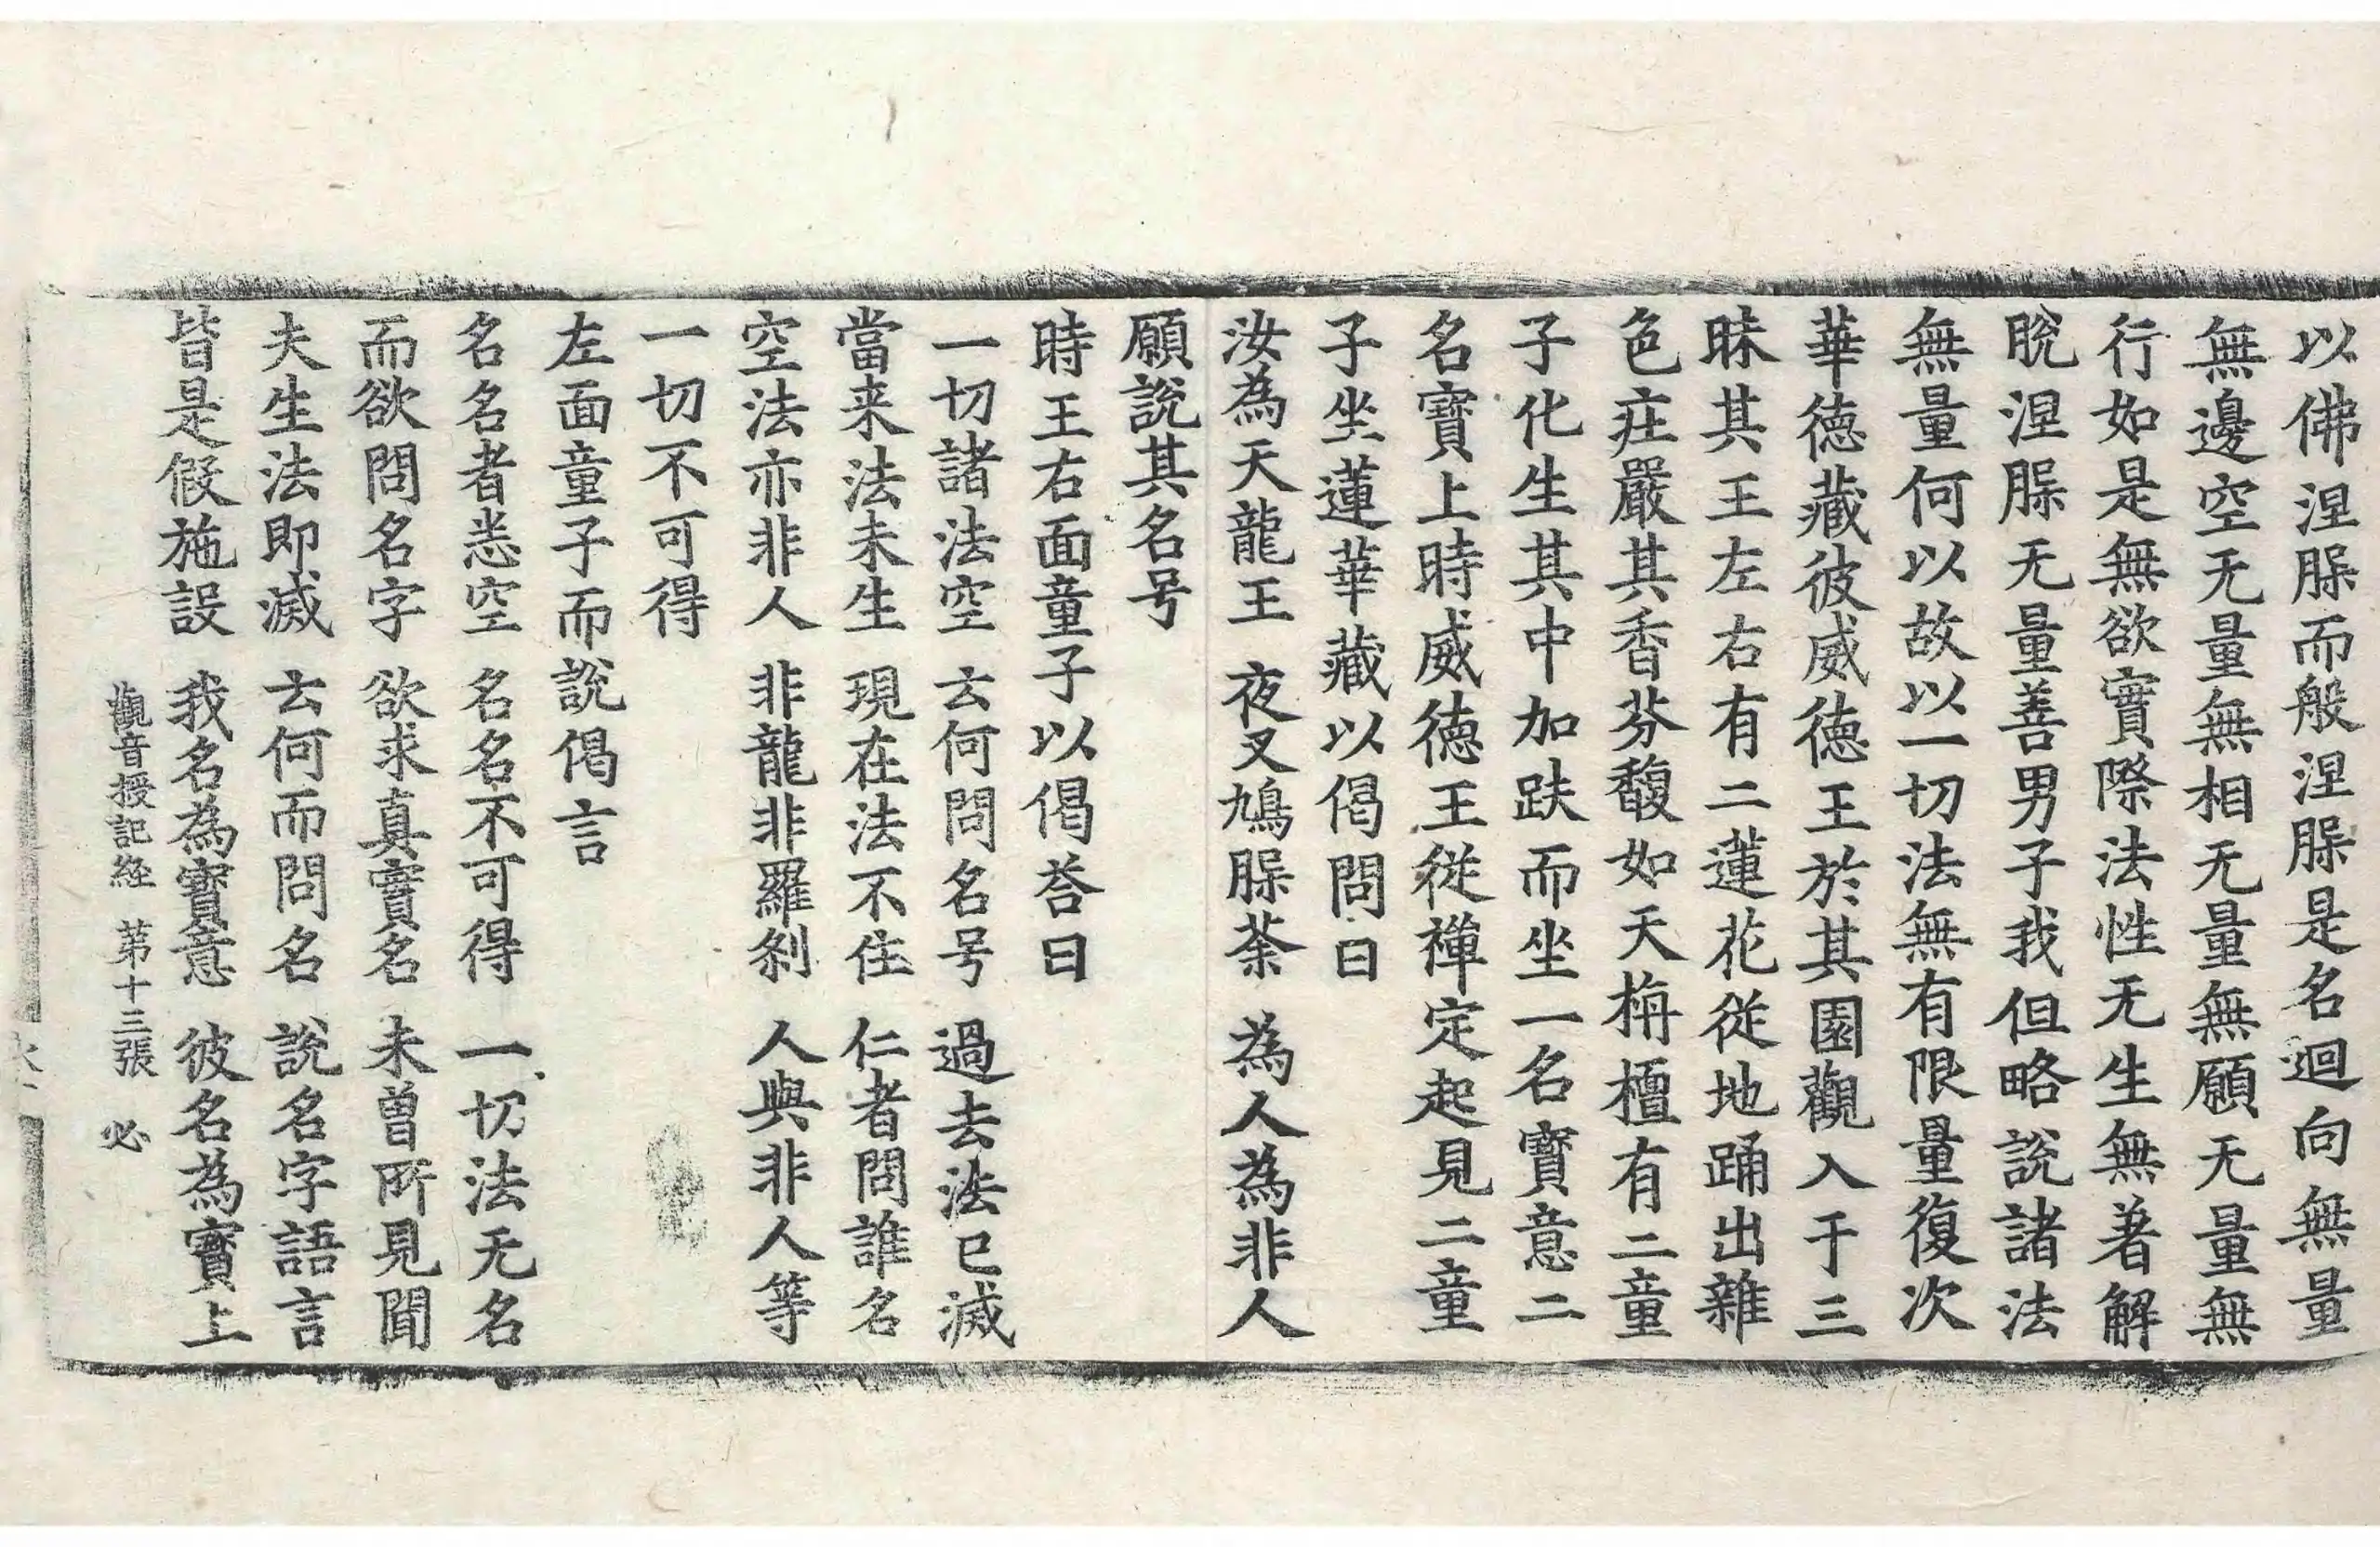 以佛涅槃而般涅槃是名迴向無量
無邊空无量無相无量無願无量無
行如是無欲實際法性无生無著解
脫涅槃无量善男子我但略說諸法
無量何以故以一切法無有限量復次
華德藏彼威德王於其園觀入于三
昧其王左右有二蓮花從地踊出雜
色庄嚴其香芬馥如天栴檀有二童
子化生其中加趺而坐一名寶意二
名寶上時威德王從禅定起見二童
子坐蓮華藏以偈問曰
汝為天龍王 夜叉鳩槃荼 為人為非人
願說其名号
時王右面童子以偈荅曰
一切諸法空 云何問名号 過去法已滅
當来法未生 現在法不住 仁者問誰名
空法亦非人 非龍非羅刹 人與非人等
一切不可得
左面童子而說偈言
名名者悉空 名名不可得 一切法无名
而欲問名字 欲求真實名 未曾所見聞
夫生法即滅 云何而問名 說名字語言
皆是假施設 我名為寶意 彼名為寶上
觀音授記経 第十三張 必